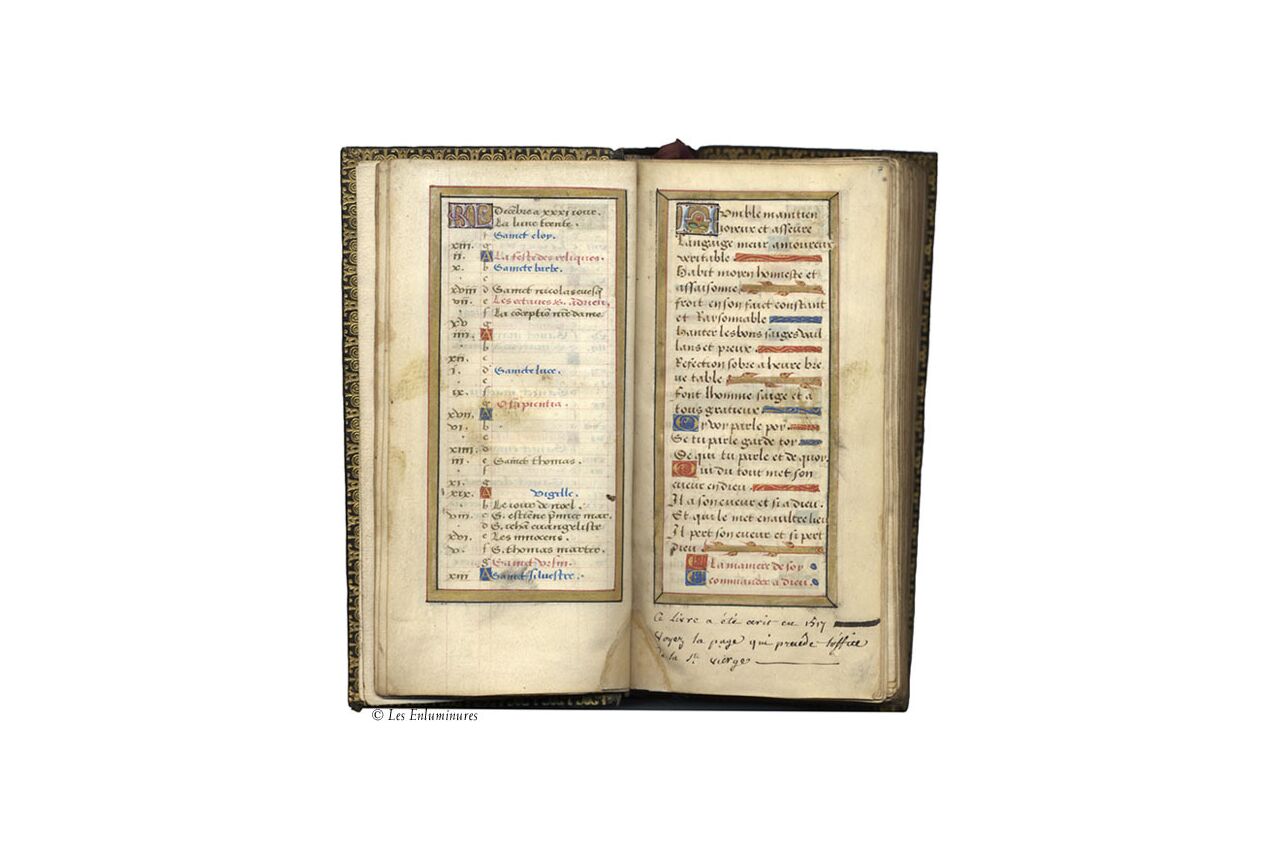 KL Decēbre a xxxi iour.
La lune trente.
f Sainct eloy.
xiii. g
ii. A La feste des reliques.
x. b Saincte barbe.
. c
xviii d Sainct nicolas euesq
vii. e Les octaues S. Adrien,
. f La cōceptiō nr̄e dame
xv g
iiii. A
. b
xii. c
i. d Saincte luce.
. e
ix. f
. g O sapientia.
xvii. A
vi. b
. c
xiiii. d
iii. e Sainct thomas.
. f
xi. g
xix. A Vigille.
. b Le iour de noel.
viii. c S. estiēne p̄mier mar.
. d S. iehā euangeliste
xvi. e Les innocens.
v. f S. thomas martir.
. g Sainct Vrsin.
xiii A Sainct siluestre.
Humble maintien
ioieux et asseure
Langaige meur amoureux
veritable
Habit moyen honneste et
assaisonne
froit en son faict constant
et Raysonnable
hanter les bons saiges vail
lans et preux.
Refection sobre a heure bre
ue table
font lhomme saige et a
tous gratieux
Oy voy parle poy.
Se tu parle garde toy
De qui tu parle et de quoy.
Qui du tout met son
cueur en dieu.
Il a son cueur et si a dieu.
Et qui le met en aultre lieu
Il pert son cueur et si pert
dieu.
La maniere de soy
commander a dieu.
Ce Livre a été écrit en 1517
Voyez la page qui précède l'office
de la Ste vierge
© Les Enluminures